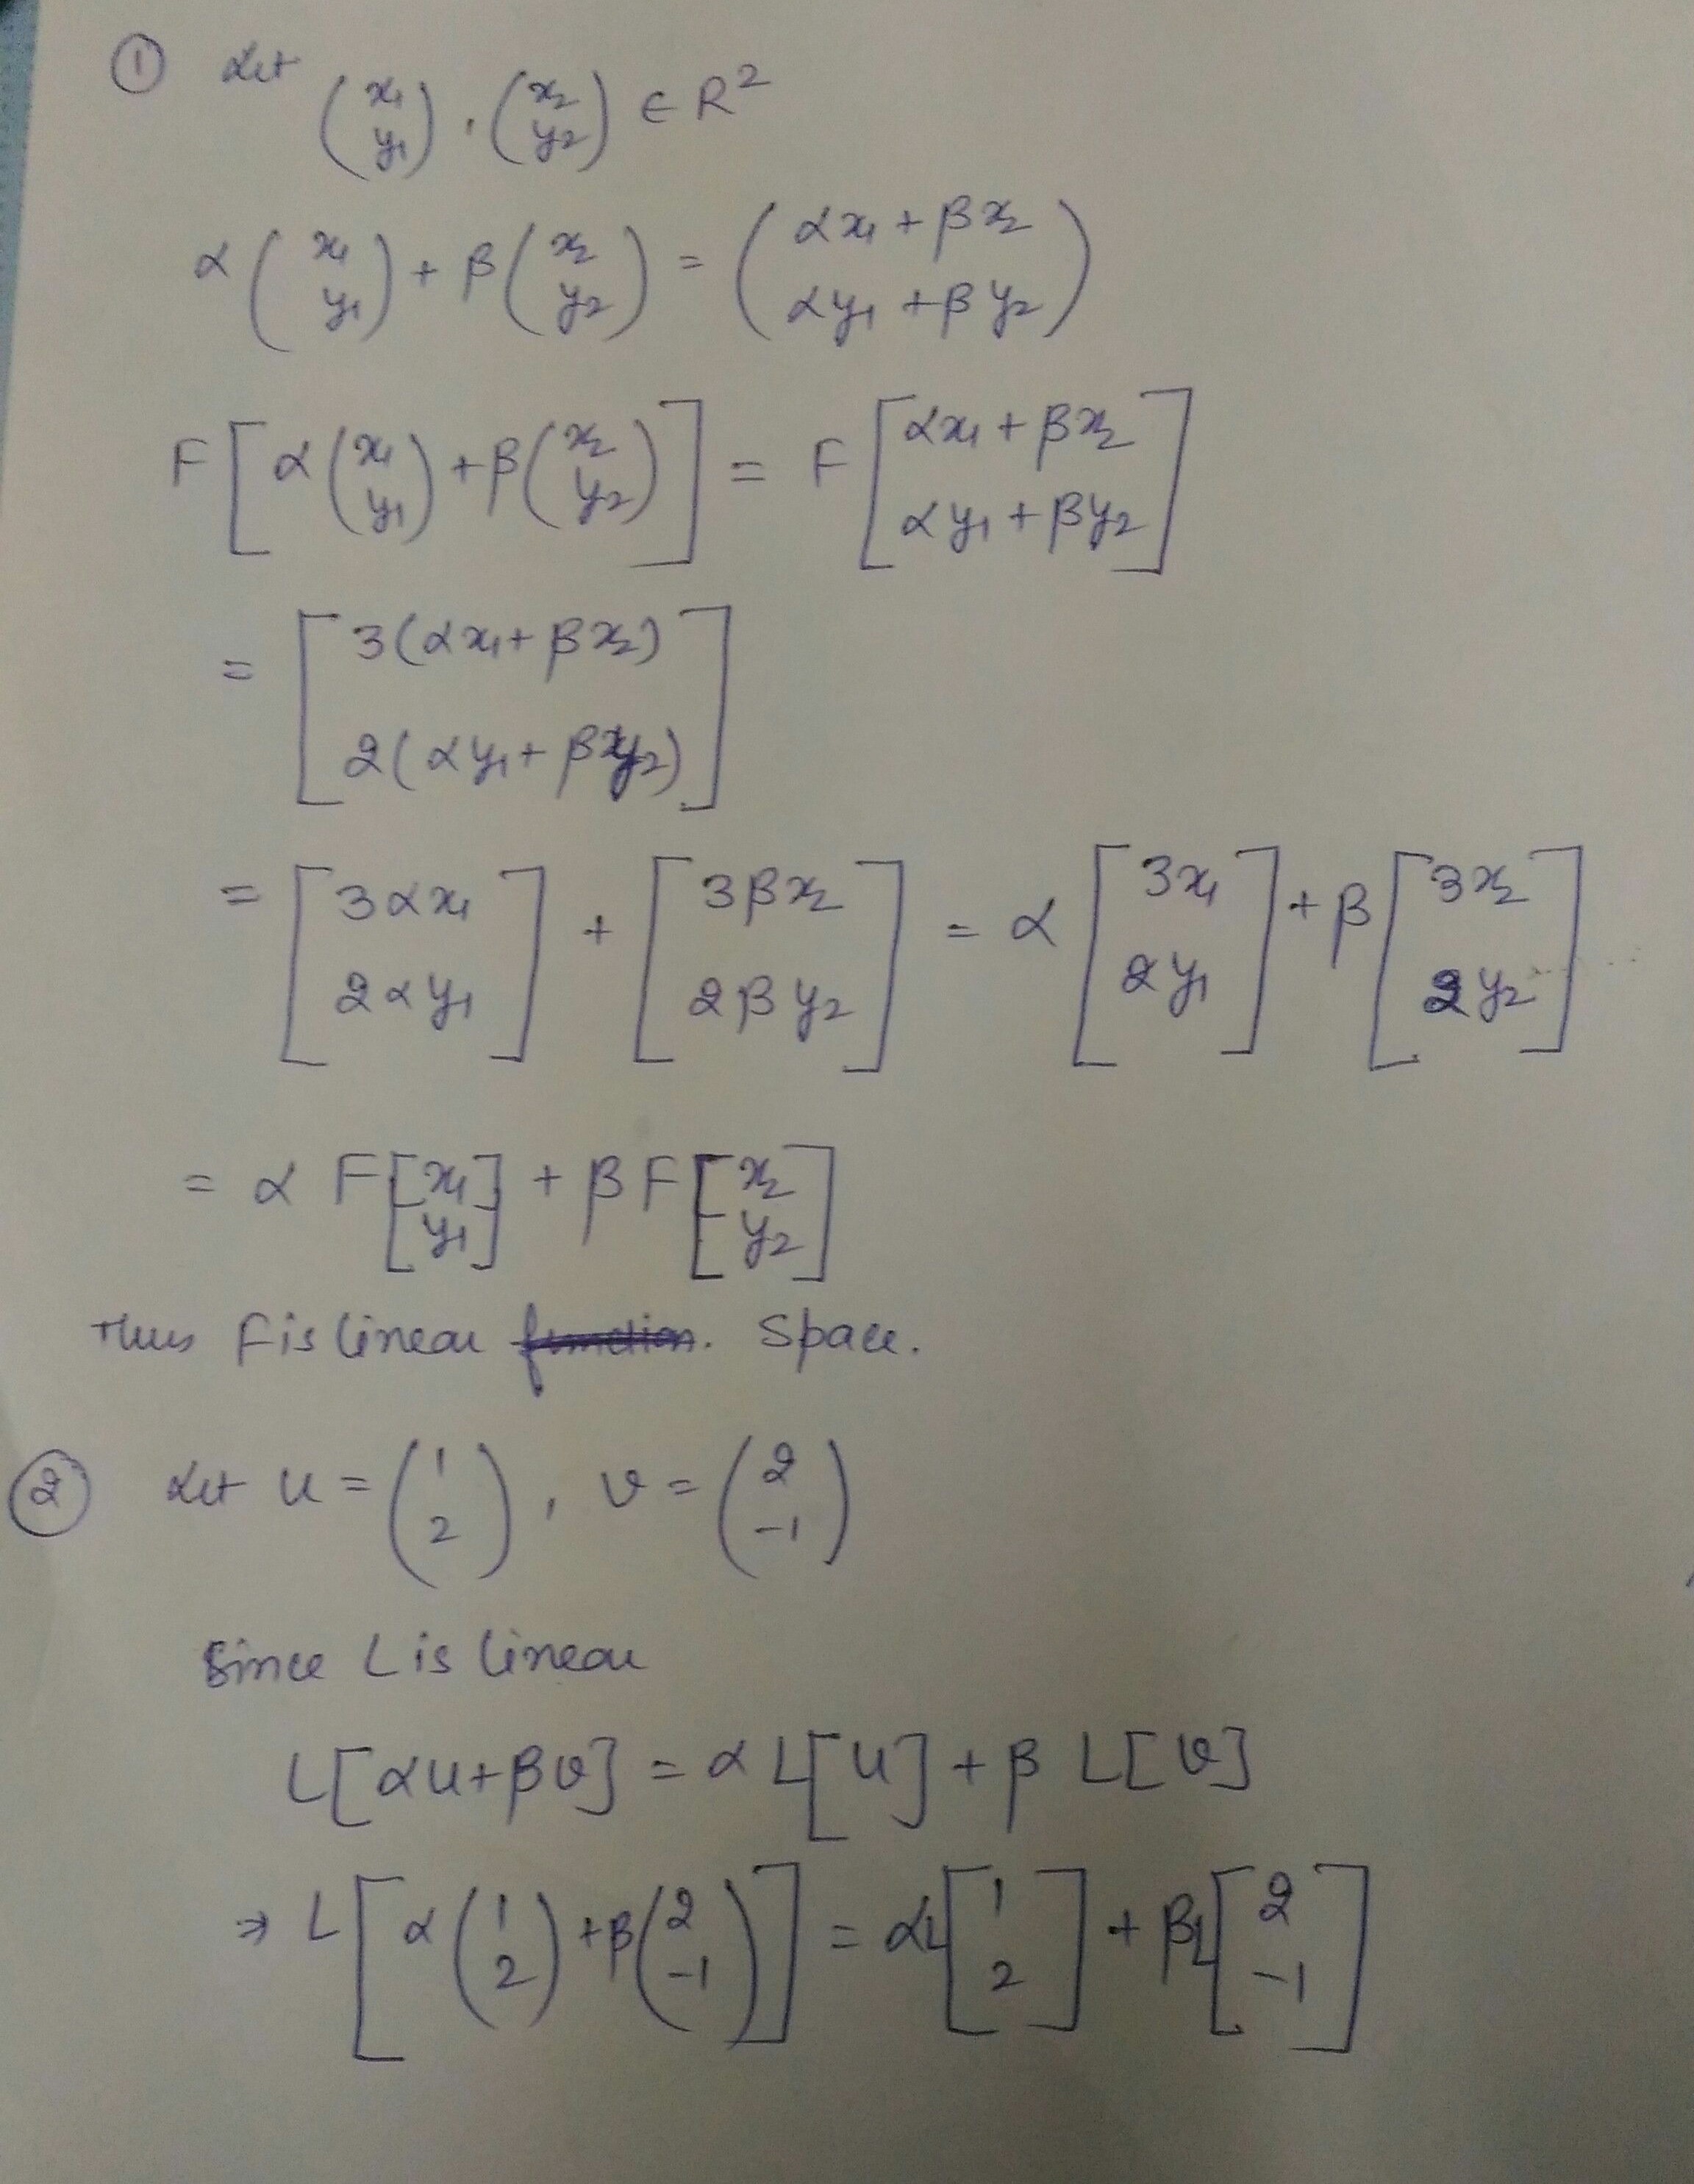 ① Let (x₁ y₁), (x₂ y₂) ∈ R²
α(x₁ y₁) + β(x₂ y₂) = (αx₁ + βx₂ αy₁ + βy₂)
F[α(x₁ y₁) + β(x₂ y₂)] = F[αx₁ + βx₂ αy₁ + βy₂]
= [3(αx₁ + βx₂) 2(αy₁ + βy₂)]
= [3αx₁ 2αy₁] + [3βx₂ 2βy₂] = α[3x₁ 2y₁] + β[3x₂ 2y₂]
= α F[x₁ y₁] + β F[x₂ y₂]
Thus F is linear function. Space.
② Let u = (1 2), v = (2 -1)
Since L is linear
L[αu + βv] = α L[u] + β L[v]
⇒ L[α(1 2) + β(2 -1)] = αL[1 2] + βL[2 -1]